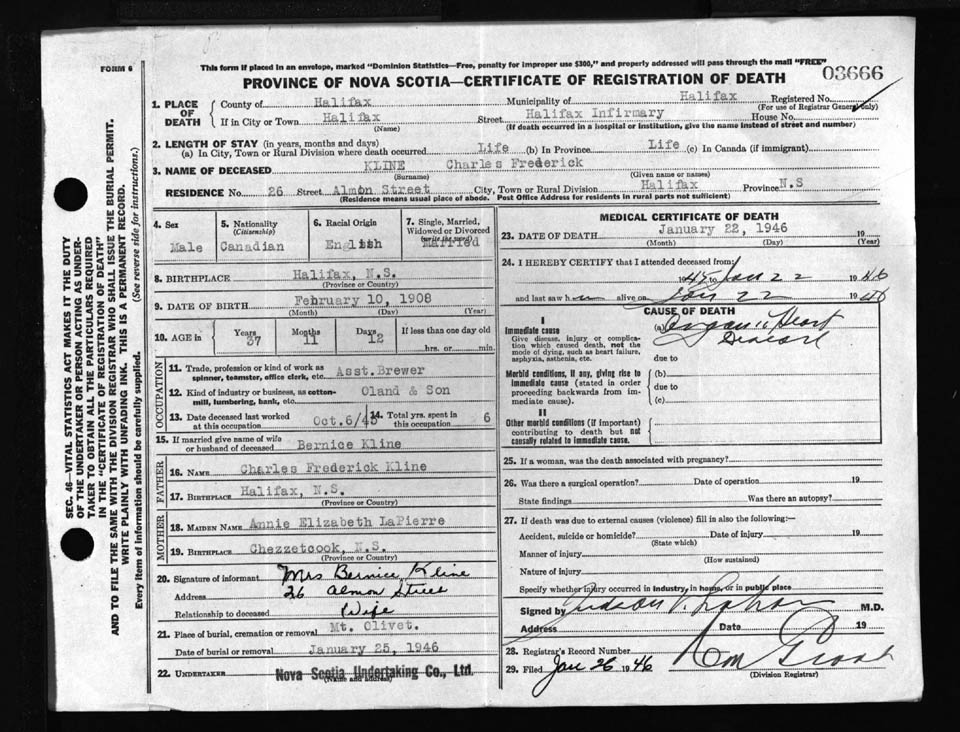 FORM 6
This form if placed in an envelope, marked "Dominion Statistics—Free, penalty for improper use $300," and properly addressed will pass through the mail "FREE"
PROVINCE OF NOVA SCOTIA—CERTIFICATE OF REGISTRATION OF DEATH
03666
1. PLACE OF DEATH
County of Halifax Municipality of Halifax Registered No.
(For use of Registrar General only)
If in City or Town Halifax Street Halifax Infirmary House No.
(Name) (If death occurred in a hospital or institution, give the name instead of street and number)
2. LENGTH OF STAY (in years, months and days)
(a) In City, Town or Rural Division where death occurred Life (b) In Province Life (c) In Canada (if immigrant)
3. NAME OF DECEASED KLINE Charles Frederick
(Surname) (Given name or names)
RESIDENCE No. 26 Street Almon Street City, Town or Rural Division Halifax Province N.S
(Residence means usual place of abode. Post Office Address for residents in rural parts not sufficient)
4. Sex
Male
5. Nationality
(Citizenship)
Canadian
6. Racial Origin
English
7. Single, Married, Widowed or Divorced
(write the word)
Married
8. BIRTHPLACE Halifax, N.S.
(Province or Country)
9. DATE OF BIRTH February 10, 1908
(Month) (Day) (Year)
10. AGE in
Years 37
Months 11
Days 12
If less than one day old
hrs. or min.
OCCUPATION
11. Trade, profession or kind of work as
spinner, teamster, office clerk, etc. Asst. Brewer
12. Kind of industry or business, as cotton-
mill, lumbering, bank, etc. Oland & Son
13. Date deceased last worked
at this occupation Oct. 6/45
14. Total yrs. spent in
this occupation 6
15. If married give name of wife
or husband of deceased Bernice Kline
FATHER
16. NAME Charles Frederick Kline
17. BIRTHPLACE Halifax, N.S.
(Province or Country)
MOTHER
18. MAIDEN NAME Annie Elizabeth LaPierre
19. BIRTHPLACE Chezzetcook, N.S.
(Province or Country)
20. Signature of informant Mrs Bernice Kline
Address 26 Almon Street
Relationship to deceased Wife
21. Place of burial, cremation or removal Mt. Olivet.
Date of burial or removal January 25, 1946
22. UNDERTAKER Nova Scotia Undertaking Co., Ltd.
(Name and address)
MEDICAL CERTIFICATE OF DEATH
23. DATE OF DEATH January 22, 1946 19
(Month) (Day) (Year)
24. I HEREBY CERTIFY that I attended deceased from:
1945 to Jan 22 1946
and last saw h alive on Jan 22 1946
CAUSE OF DEATH
I
Immediate cause
Give disease, injury or complica-
tion which caused death, not the
mode of dying, such as heart failure,
asphyxia, asthenia, etc.
(a) Organic Heart
Disease
due to
Morbid conditions, if any, giving rise to
immediate cause (stated in order
proceeding backwards from im-
mediate cause).
(b)
due to
(c)
II
Other morbid conditions (if important)
contributing to death but not
causally related to immediate cause.
25. If a woman, was the death associated with pregnancy?
26. Was there a surgical operation? Date of operation 19
State findings Was there an autopsy?
27. If death was due to external causes (violence) fill in also the following:—
Accident, suicide or homicide? Date of injury 19
(State which)
Manner of injury
(How sustained)
Nature of injury
Specify whether injury occurred in industry, in home, or in public place
Signed by Judson V. Graham M.D.
Address Date 19
28. Registrar's Record Number
29. Filed Jan 26 1946
(Division Registrar)
SEC. 46—VITAL STATISTICS ACT MAKES IT THE DUTY
OF THE UNDERTAKER OR PERSON ACTING AS UNDER-
TAKER TO OBTAIN ALL THE PARTICULARS REQUIRED
IN THE "CERTIFICATE OF REGISTRATION OF DEATH"
AND TO FILE THE SAME WITH THE DIVISION REGISTRAR WHO SHALL ISSUE THE BURIAL PERMIT.
WRITE PLAINLY WITH UNFADING INK. THIS IS A PERMANENT RECORD.
Every item of information should be carefully supplied. (See reverse side for instructions.)